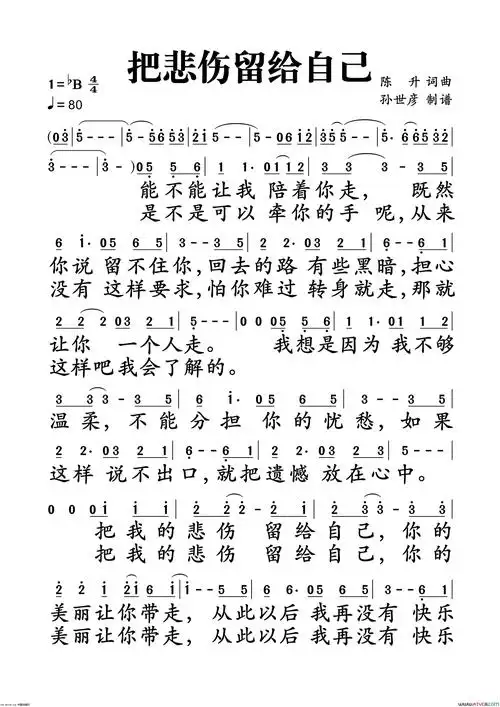 把悲伤留给自己
1=♭B 4/4
陈 升 词曲
♩=80
孙世彦 制谱
(03 5 - - - 5 - - - 5 - 56 53 21 5 - - - 5 - 06 12 3 - - - 3 - 06 65 32
3 - - - 3 - )05 5 6 1 1· 01 12 3 3 3 - 3 5
能不能让我 陪着你走, 既然
是不是可以 牵你的手 呢,从来
6 1· 05 6 5 3 - - 3 5 2 2· 03 2 1 6 - - 6 1
你说 留不住你,回去的路 有些黑暗,担心
没有 这样要求,怕你难过 转身就走,那就
2 2 2 03 2 1 5 - - - 0 0 05 5 6 1 1· 01 1 2
让你 一个人走。 我想是因为 我不够
这样吧我会了解的。
3 3 - 3 5 6 1· 05 6 5 3 - - 3 5
温柔, 不能分担 你的忧愁,如果
2 2· 03 2 1 6 - - 6 1 2 2· 03 2 1 1 - - -
这样 说不出口,就把遗憾 放在心中。
0 0 01 1 1 1 2 2 2 - 2 1 2 2 3 - 2 1
把我的悲伤 留给自己,你的
把我的悲伤 留给自己,你的
2 2 1 21 6 1 1 - - 5 6 6· 05 6 5 3 - - 6 1
美丽让你带走, 从此以后 我再没有 快乐
美丽让你带走, 从此以后 我再没有 快乐